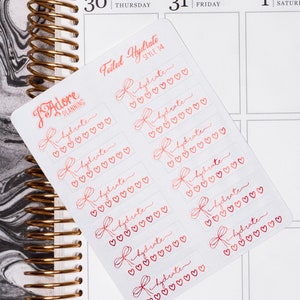 30 THURSDAY
31 FRIDAY
1
J'Adore
PLANNING
Foiled Hydrate
STYLE 14
hydrate
hydrate
hydrate
hydrate
hydrate
hydrate
hydrate
hydrate
hydrate
hydrate
hydrate
hydrate